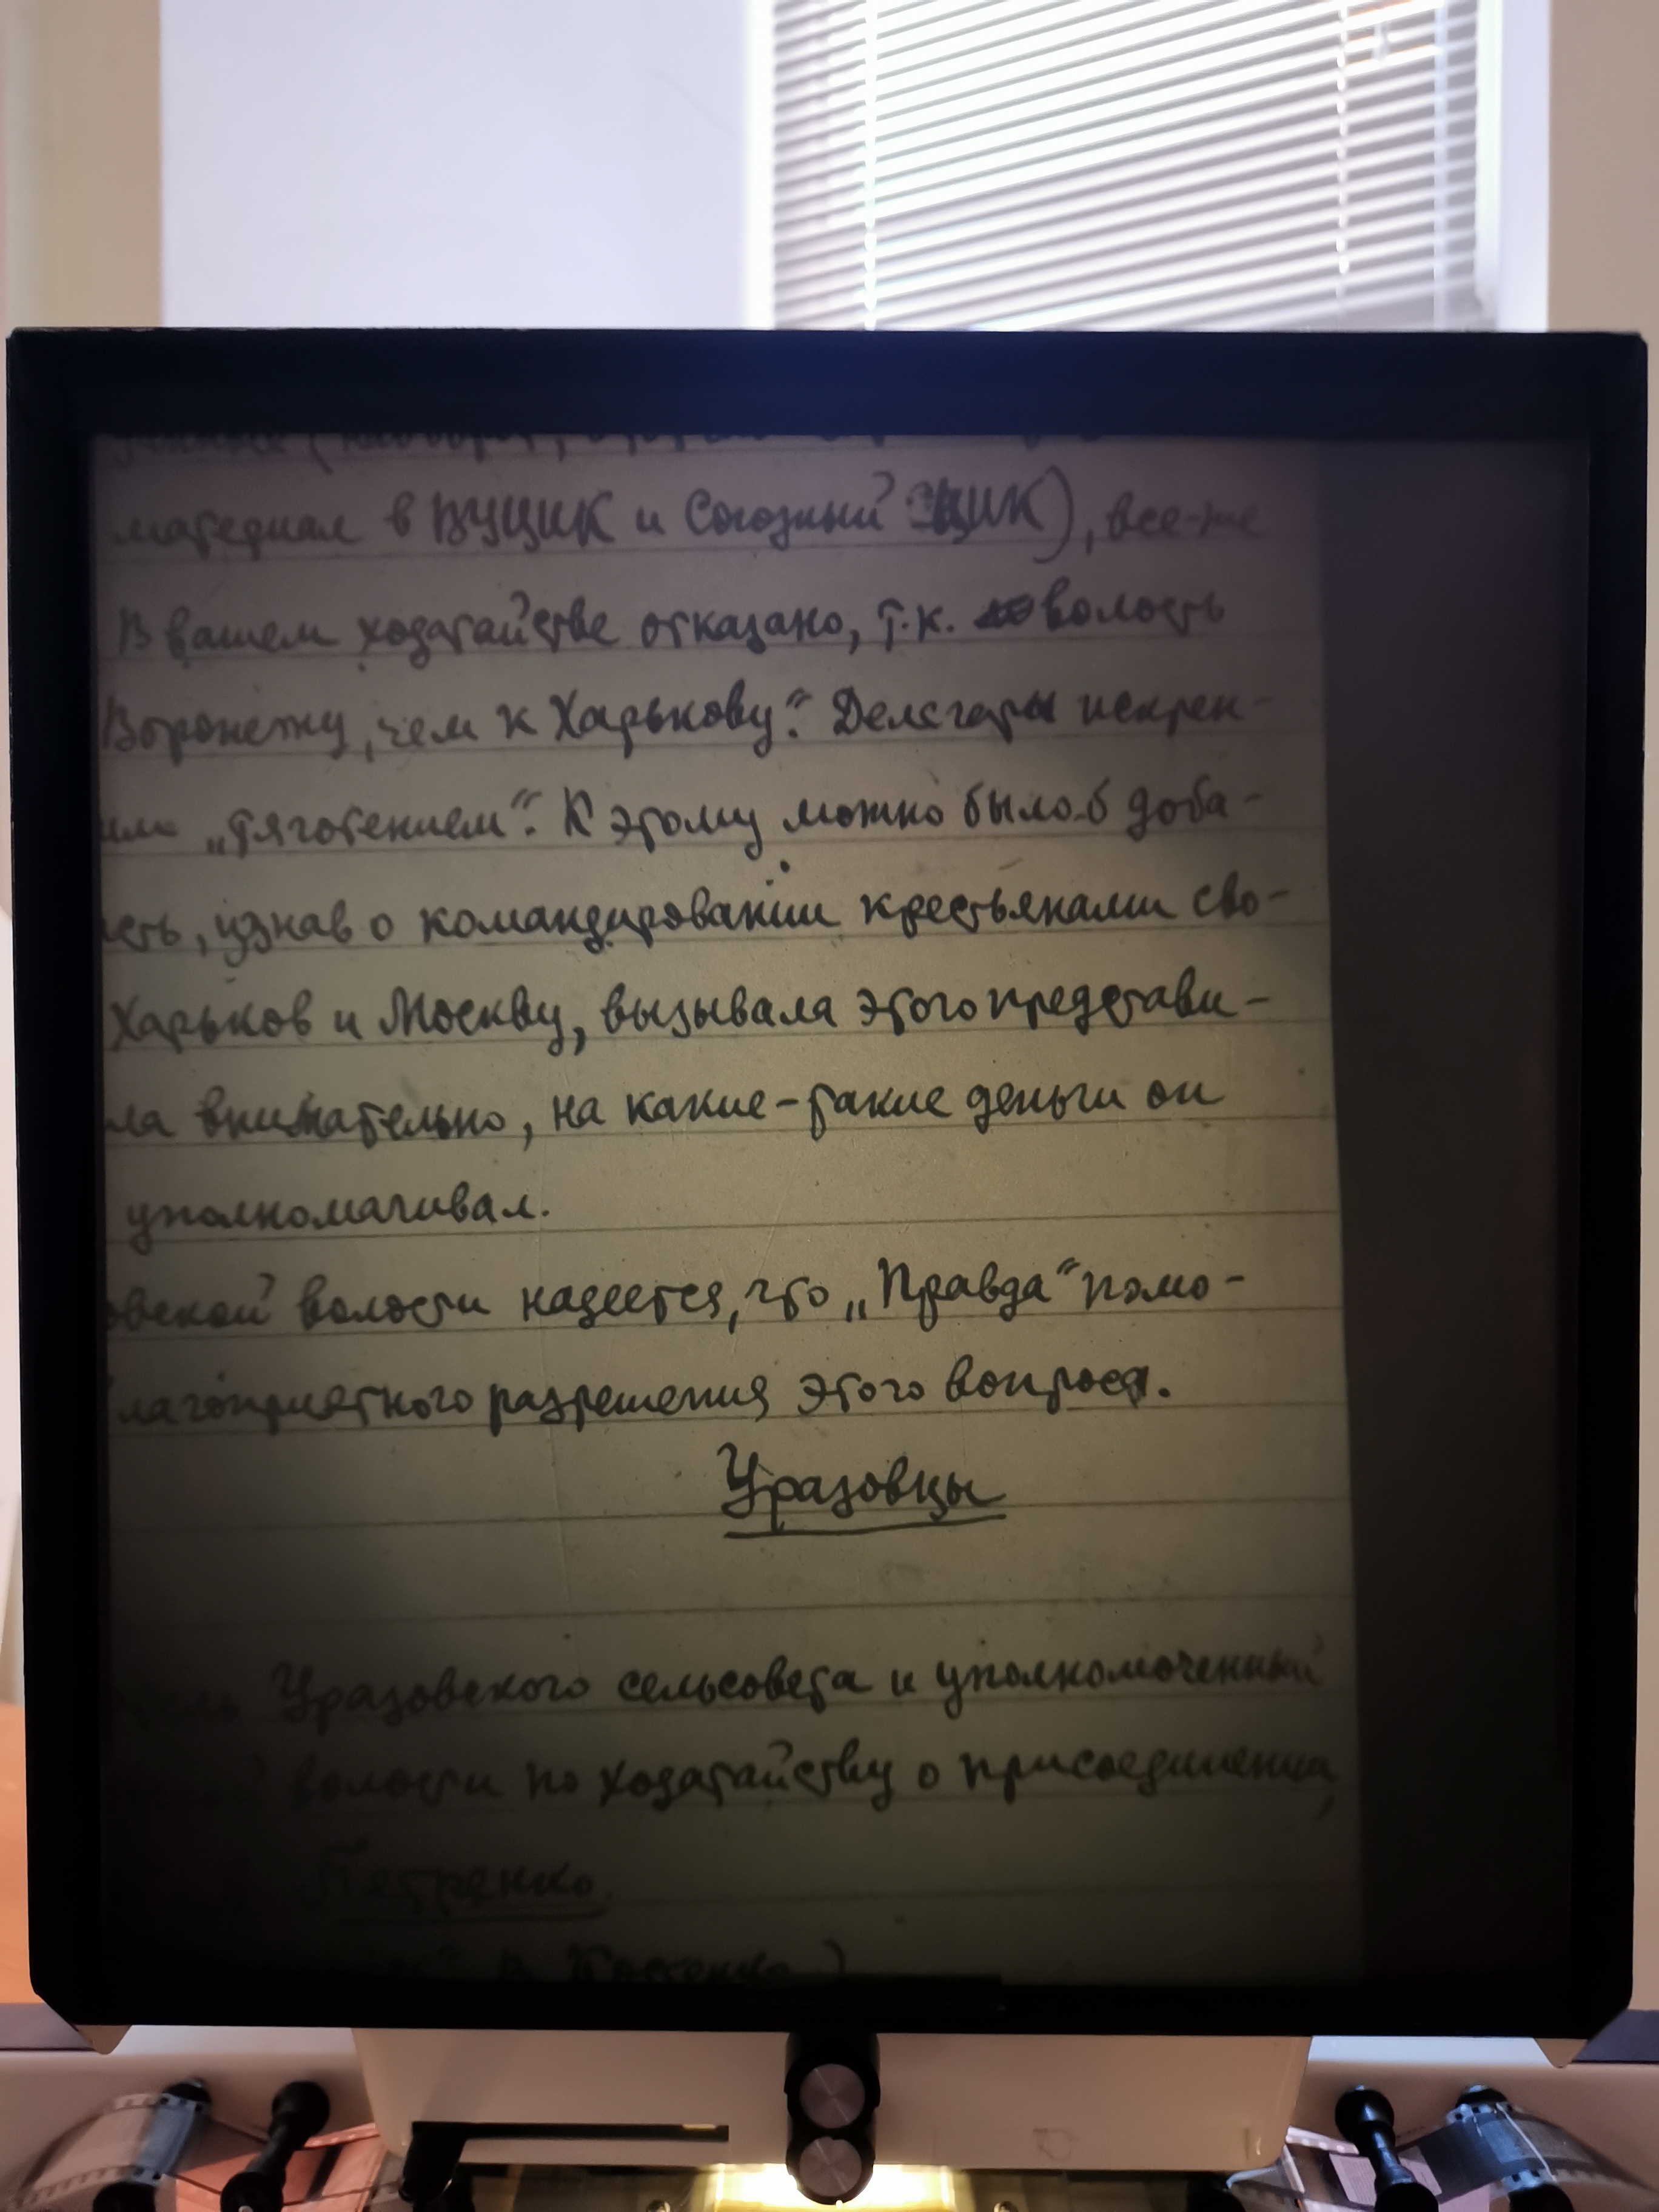 материал в ВУЦИК и Союзный ЦИК), все-же
В вашем ходатайстве отказано, т.к. волость
Воронежу, чем к Харькову“. Делегаты искрен-
им „тяготением“. К этому можно было-б доба-
сть, узнав о командировании крестьянами сво-
Харьков и Москву, вызывала этого представи-
ла внимательно, на какие-такие деньги он
уполномачивал.
овской волости надеется, что „Правда“ помо-
лагоприятного разрешения этого вопроса.
Уразовцы
тель Уразовского сельсовета и уполномоченный
волости по ходатайству о присоединении,
Петренко